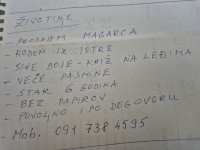 ŽIVOTINJE
PRODAJEM MAGARCA
- RODOM IZ ISTRE
- SIVE BOJE - KRIŽ NA LEĐIMA
- VEĆE PASMINE
- STAR 6 GODINA
- BEZ PAPIROV
- POVOLJNO I PO DOGOVORU
Mob. 091 738 4595